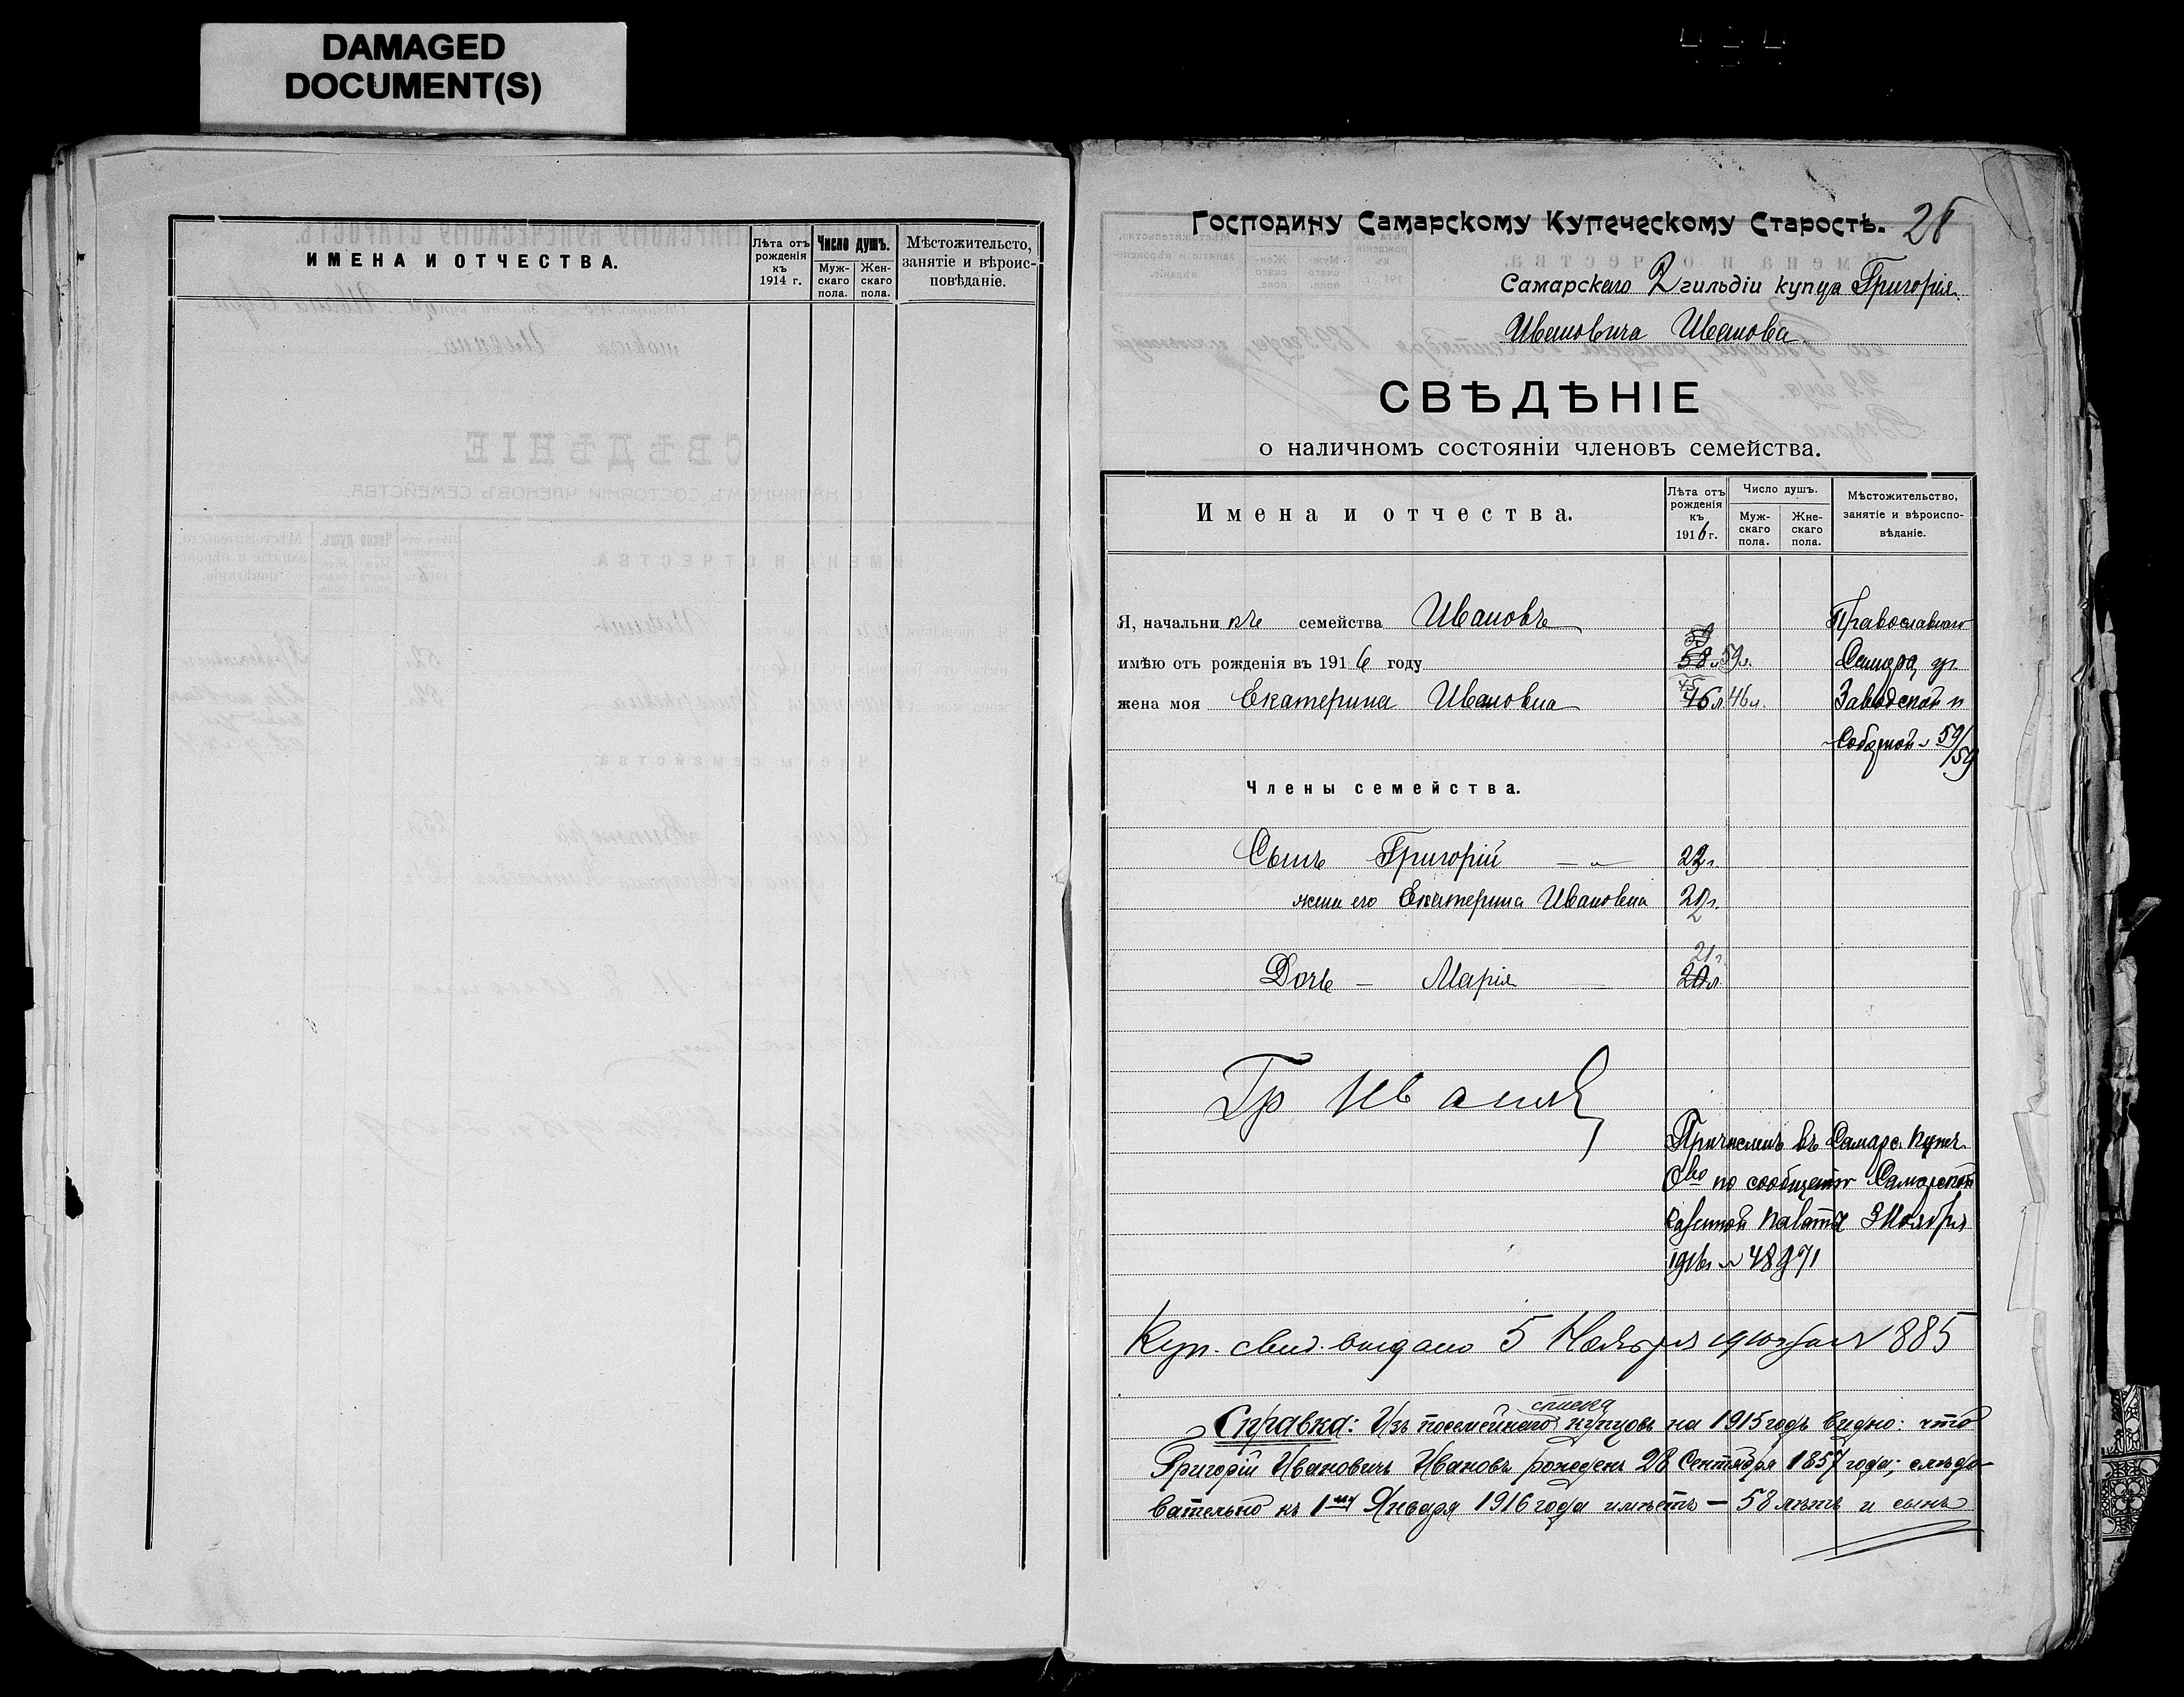 DAMAGED
DOCUMENT(S)
ИМЕНА И ОТЧЕСТВА.
Лѣта отъ рожденія къ 1914 г.
Число душъ.
Мужскаго пола.
Женскаго пола.
Мѣстожительсто, занятіе и вѣроисповѣданіе.
Господину Самарскому Купеческому Старостѣ.
Самарскаго 2 гильдіи купца Григорія
Ивановича Иванова
СВѢДѢНІЕ
о наличномъ состояніи членовъ семейства.
Имена и отчества.
Лѣта отъ рожденія къ 1916 г.
Число душъ.
Мужскаго пола.
Жнескаго пола.
Мѣстожительство, занятіе и вѣроисповѣданіе.
Я, начальникъ семейства Ивановъ Православнаго
имѣю отъ рожденія въ 1916 году 58 л 59 л. Самара ул.
жена моя Екатерина Ивановна 46 л. Заводской и
Соборной 59/59
Члены семейства.
Сынъ Григорій — „ —
жена его Екатерина Ивановна
21 г.
Дочь — Марія 20 л.
Гр Ивановъ
Причисленъ въ Самарс. купеч.
О-во по сообщенію Самарской
Казенной Палаты 3 Ноября
Куп. свид. выдано 5 Ноября 885
списка
Справка: Изъ посемейнаго купцовъ на 1915 годъ видно: что
Григорій Ивановичъ Ивановъ рожденъ 28 Сентября 1857 года; слѣдо-
вательно къ 1му Января 1916 года имѣетъ — 58 лѣтъ и сынъ